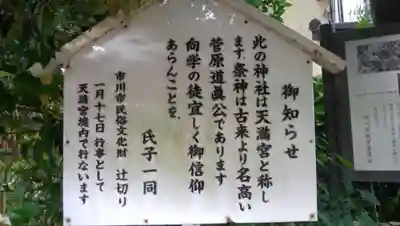 御知らせ
此の神社は天満宮と称し
ます祭神は古来より名高い
菅原道眞公であります
向学の徒宜しく御信仰
あらんことを
氏子一同
市川市民俗文化財 辻切り
一月十七日行事として
天満宮境内で行ないます